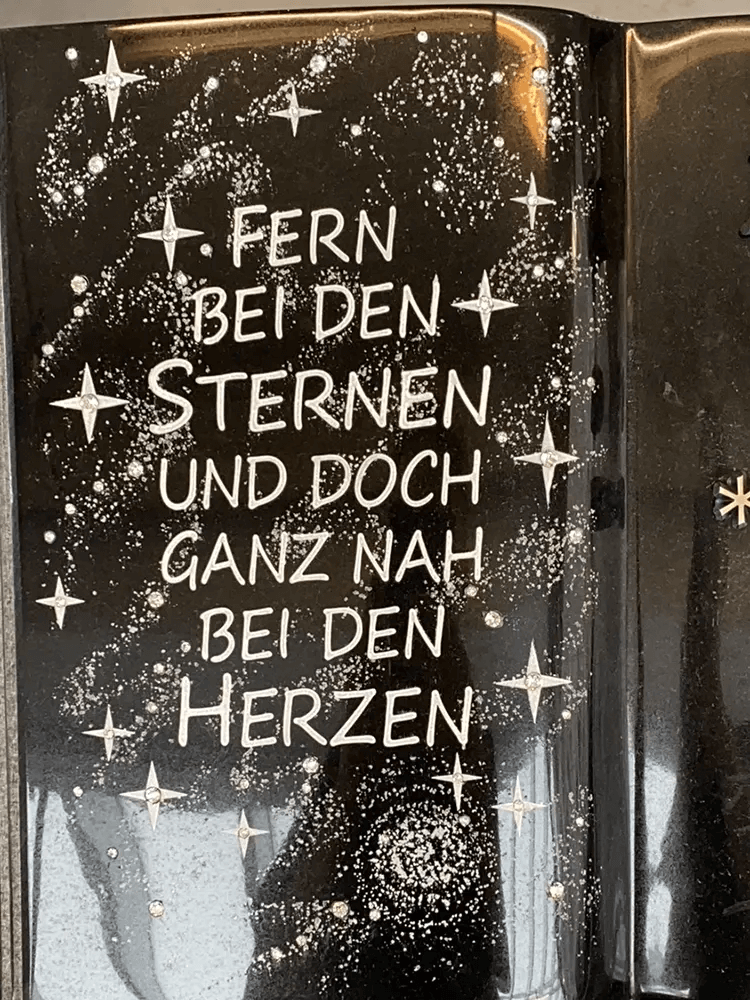 FERN
BEI DEN
STERNEN
UND DOCH
GANZ NAH
BEI DEN
HERZEN